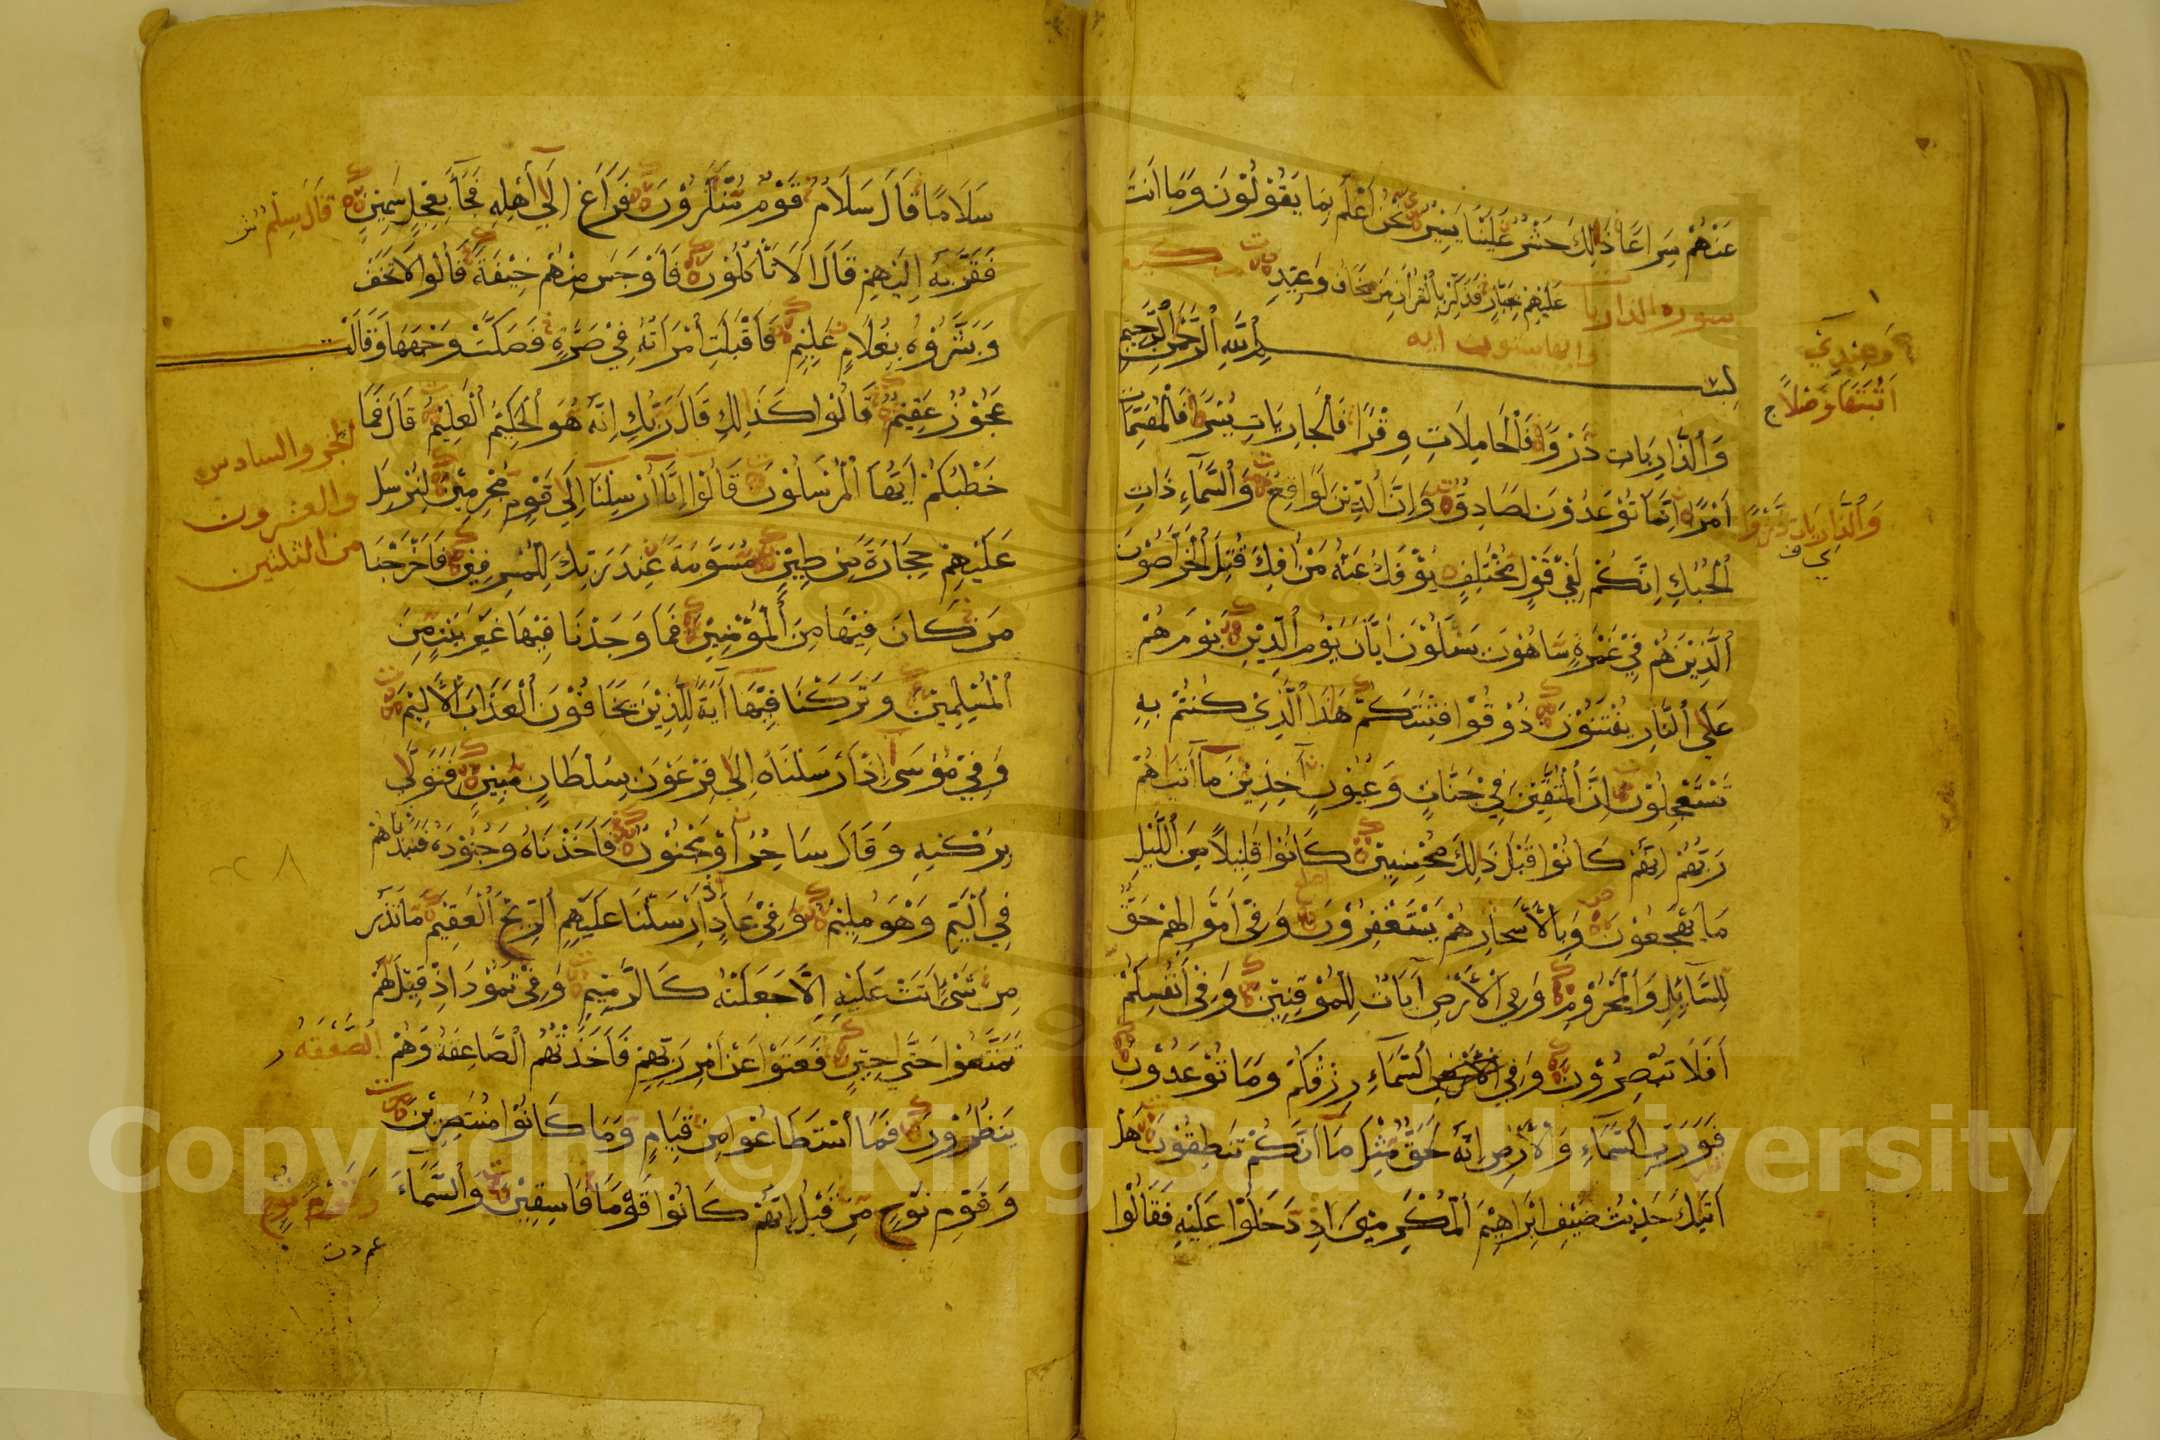 عَنْهُمْ سِرَاعًا ذَٰلِكَ حَشْرٌ عَلَيْنَا يَسِيرٌ نَحْنُ أَعْلَمُ بِمَا يَقُوْلُوْنَ وَمَا أَنتَ
عَلَيْهِمْ بِجَبَّارٍ فَذَكِّرْ بِالْقُرْآنِ مَن يَخَافُ وَعِيْدِ
سورة الذاريات مكية
وايها ستون اية
بِسْمِ اللَّهِ الرَّحْمَٰنِ الرَّحِيمِ
وَالذَّارِيَاتِ ذَرْوًا فَالْحَامِلَاتِ وِقْرًا فَالْجَارِيَاتِ يُسْرًا فَالْمُقَسِّمَاتِ
أَمْرًا إِنَّمَا تُوْعَدُوْنَ لَصَادِقٌ وَإِنَّ الدِّيْنَ لَوَاقِعٌ وَالسَّمَاءِ ذَاتِ
الْحُبُكِ إِنَّكُمْ لَفِيْ قَوْلٍ مُخْتَلِفٍ يُؤْفَكُ عَنْهُ مَنْ أُفِكَ قُتِلَ الْخَرَّاصُوْنَ
الَّذِيْنَ هُمْ فِيْ غَمْرَةٍ سَاهُوْنَ يَسْـَٔلُوْنَ أَيَّانَ يَوْمُ الدِّيْنِ يَوْمَ هُمْ
عَلَى النَّارِ يُفْتَنُوْنَ ذُوْقُوْا فِتْنَتَكُمْ هَٰذَا الَّذِيْ كُنْتُمْ بِهِ
تَسْتَعْجِلُوْنَ إِنَّ الْمُتَّقِيْنَ فِيْ جَنَّاتٍ وَعُيُوْنٍ آخِذِيْنَ مَا آتَاهُمْ
رَبُّهُمْ إِنَّهُمْ كَانُوْا قَبْلَ ذَٰلِكَ مُحْسِنِيْنَ كَانُوْا قَلِيْلًا مِنَ اللَّيْلِ
مَا يَهْجَعُوْنَ وَبِالْأَسْحَارِ هُمْ يَسْتَغْفِرُوْنَ وَفِيْ أَمْوَالِهِمْ حَقٌّ
لِلسَّائِلِ وَالْمَحْرُوْمِ وَفِي الْأَرْضِ آيَاتٌ لِلْمُوْقِنِيْنَ وَفِيْ أَنْفُسِكُمْ
أَفَلَا تُبْصِرُوْنَ وَفِي السَّمَاءِ رِزْقُكُمْ وَمَا تُوْعَدُوْنَ
فَوَرَبِّ السَّمَاءِ وَالْأَرْضِ إِنَّهُ لَحَقٌّ مِثْلَ مَا أَنَّكُمْ تَنْطِقُوْنَ هَلْ
أَتَىٰكَ حَدِيْثُ ضَيْفِ إِبْرَاهِيْمَ الْمُكْرَمِيْنَ إِذْ دَخَلُوْا عَلَيْهِ فَقَالُوْا
وَعِيدِي
أَثْبَتَهَا وَصْلًا ج
وَالذَّارِيَات ذَّرْوًا
سَلَامًا قَالَ سَلَامٌ قَوْمٌ مُنْكَرُوْنَ فَرَاغَ إِلَىٰ أَهْلِهِ فَجَاءَ بِعِجْلٍ سَمِيْنٍ
قَالَ سِلْمٌ
فَقَرَّبَهُ إِلَيْهِمْ قَالَ أَلَا تَأْكُلُوْنَ فَأَوْجَسَ مِنْهُمْ خِيْفَةً قَالُوا لَا تَخَفْ
وَبَشَّرُوْهُ بِغُلَامٍ عَلِيْمٍ فَأَقْبَلَتِ امْرَأَتُهُ فِيْ صَرَّةٍ فَصَكَّتْ وَجْهَهَا وَقَالَتْ
عَجُوْزٌ عَقِيْمٌ قَالُوْا كَذَٰلِكِ قَالَ رَبُّكِ إِنَّهُ هُوَ الْحَكِيْمُ الْعَلِيْمُ قَالَ فَمَا
خَطْبُكُمْ أَيُّهَا الْمُرْسَلُوْنَ قَالُوْا إِنَّا أُرْسِلْنَا إِلَىٰ قَوْمٍ مُجْرِمِيْنَ لِنُرْسِلَ
عَلَيْهِمْ حِجَارَةً مِنْ طِيْنٍ مُسَوَّمَةً عِنْدَ رَبِّكَ لِلْمُسْرِفِيْنَ فَأَخْرَجْنَا
مَنْ كَانَ فِيْهَا مِنَ الْمُؤْمِنِيْنَ فَمَا وَجَدْنَا فِيْهَا غَيْرَ بَيْتٍ مِنَ
الْمُسْلِمِيْنَ وَتَرَكْنَا فِيْهَا آيَةً لِلَّذِيْنَ يَخَافُوْنَ الْعَذَابَ الْأَلِيْمَ
وَفِيْ مُوْسَىٰ إِذْ أَرْسَلْنَاهُ إِلَىٰ فِرْعَوْنَ بِسُلْطَانٍ مُبِيْنٍ فَتَوَلَّىٰ
بِرُكْنِهِ وَقَالَ سَاحِرٌ أَوْ مَجْنُوْنٌ فَأَخَذْنَاهُ وَجُنُوْدَهُ فَنَبَذْنَاهُمْ
فِي الْيَمِّ وَهُوَ مُلِيْمٌ وَفِيْ عَادٍ إِذْ أَرْسَلْنَا عَلَيْهِمِ الرِّيْحَ الْعَقِيْمَ مَا تَذَرُ
مِنْ شَيْءٍ أَتَتْ عَلَيْهِ إِلَّا جَعَلَتْهُ كَالرَّمِيْمِ وَفِيْ ثَمُوْدَ إِذْ قِيْلَ لَهُمْ
تَمَتَّعُوْا حَتَّىٰ حِيْنٍ فَعَتَوْا عَنْ أَمْرِ رَبِّهِمْ فَأَخَذَتْهُمُ الصَّاعِقَةُ وَهُمْ
الصَّعْقَةُ ر
يَنْظُرُوْنَ فَمَا اسْتَطَاعُوْا مِنْ قِيَامٍ وَمَا كَانُوْا مُنْتَصِرِيْنَ
وَقَوْمَ نُوْحٍ مِنْ قَبْلُ إِنَّهُمْ كَانُوْا قَوْمًا فَاسِقِيْنَ وَالسَّمَاءَ
وَقَوْمِ نُوْحٍ
الجزو السادس
والعشرون
من الثلثين
Copyright © King Saud University